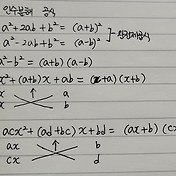 인수분해 공식
a²+2ab+b² = (a+b)²
a²-2ab+b² = (a-b)² 완전제곱식
a²-b² = (a+b)(a-b)
x²+(a+b)x+ab = (x+a)(x+b)
x a
x b
acx²+(ad+bc)x+bd = (ax+b)(cx
ax b
cx d